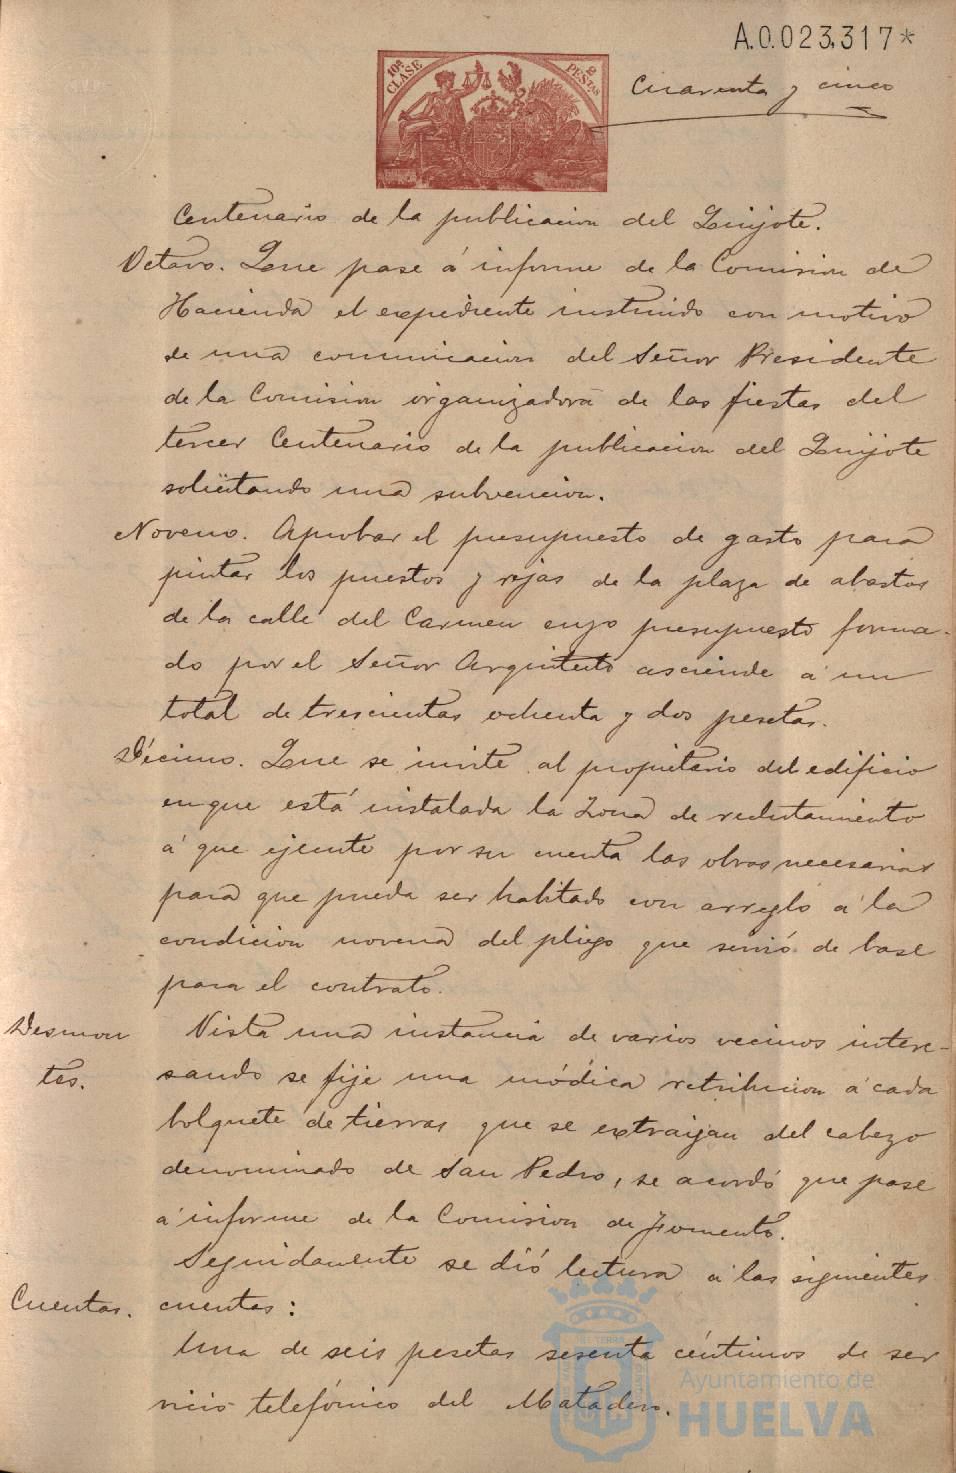 A.0.023,317*
10ª CLASE
2 PESTAS
Cuarenta y cinco
Centenario de la publicacion del Quijote.
Octavo. Que pase á informe de la Comision de
Hacienda el expediente instruido con motivo
de una comunicacion del Señor Presidente
de la Comision organizadora de las fiestas del
tercer Centenario de la publicacion del Quijote
solicitando una subvencion.
Noveno. Aprobar el presupuesto de gasto para
pintar los puestos y rejas de la plaza de abastos
de la calle del Carmen cuyo presupuesto forma-
do por el Señor Arquitecto asciende á un
total de trescientas ochenta y dos pesetas.
Décimo. Que se invite al propietario del edificio
en que está instalada la Zona de reclutamiento
á que ejecute por su cuenta las obras necesarias
para que pueda ser habitado con arreglo á la
condicion novena del pliego que sirvió de base
para el contrato.
Desmon
tes.
Vista una instancia de varios vecinos intere-
sando se fije una módica retribucion á cada
bolquete de tierras que se extraijan del cabezo
denominado de San Pedro, se acordó que pase
á informe de la Comision de Fomento.
Seguidamente se dió lectura á las siguientes
Cuentas.
cuentas:
Una de seis pesetas sesenta céntimos de ser
vicio telefónico del Matadero.
Ayuntamiento de
HUELVA